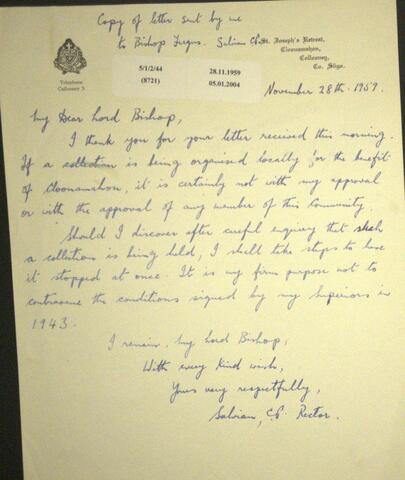 Copy of letter sent by me
to Bishop Fergus. Salvian C.P.
St. Joseph's Retreat,
Cloonamahon,
Collooney,
Co. Sligo.
Telephone
Collooney 3
5/1/2/44
(8721)
28.11.1959
05.01.2004
November 28th. 1959.
My Dear Lord Bishop,
I thank you for your letter received this morning.
If a collection is being organised locally for the benefit
of Cloonamahon, it is certainly not with my approval
or with the approval of any member of this Community.
Should I discover after careful enquiry that such
a collection is being held, I shall take steps to have
it stopped at once. It is my firm purpose not to
contravene the conditions signed by my Superiors in
1943.
I remain, My Lord Bishop,
With every kind wish,
Yours very respectfully,
Salvian, C.P. Rector.